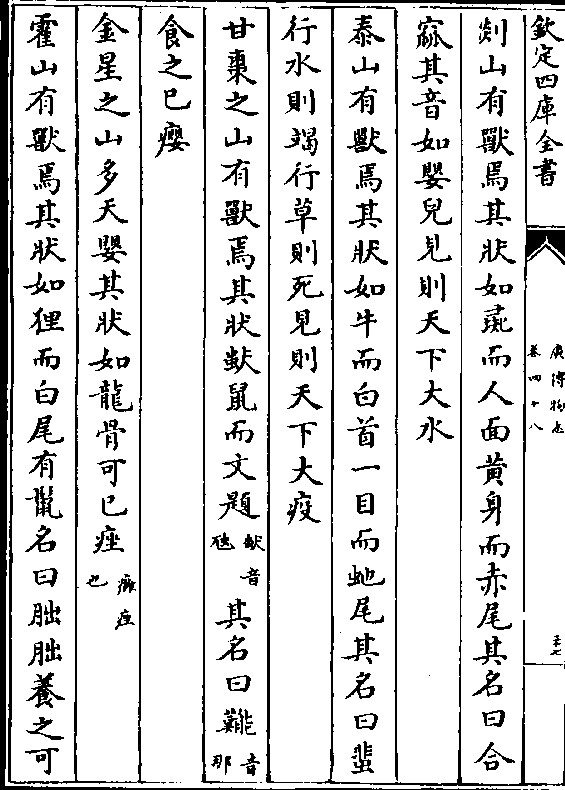 欽定四庫全書
廣博物志
卷四十八
剡山有獸焉其狀如彘而人面黄身而赤尾其名曰合
窳其音如嬰兒見則天下大水
泰山有獸焉其狀如牛而白首一目而虵尾其名曰蜚
行水則竭行草則死見則天下大疫
甘棗之山有獸焉其狀䶈鼠而文題其名曰㔮
食之已癭
金星之山多天嬰其狀如龍骨可已痤癰痤也
霍山有獸焉其狀如狸而白尾有鬛名曰朏朏養之可